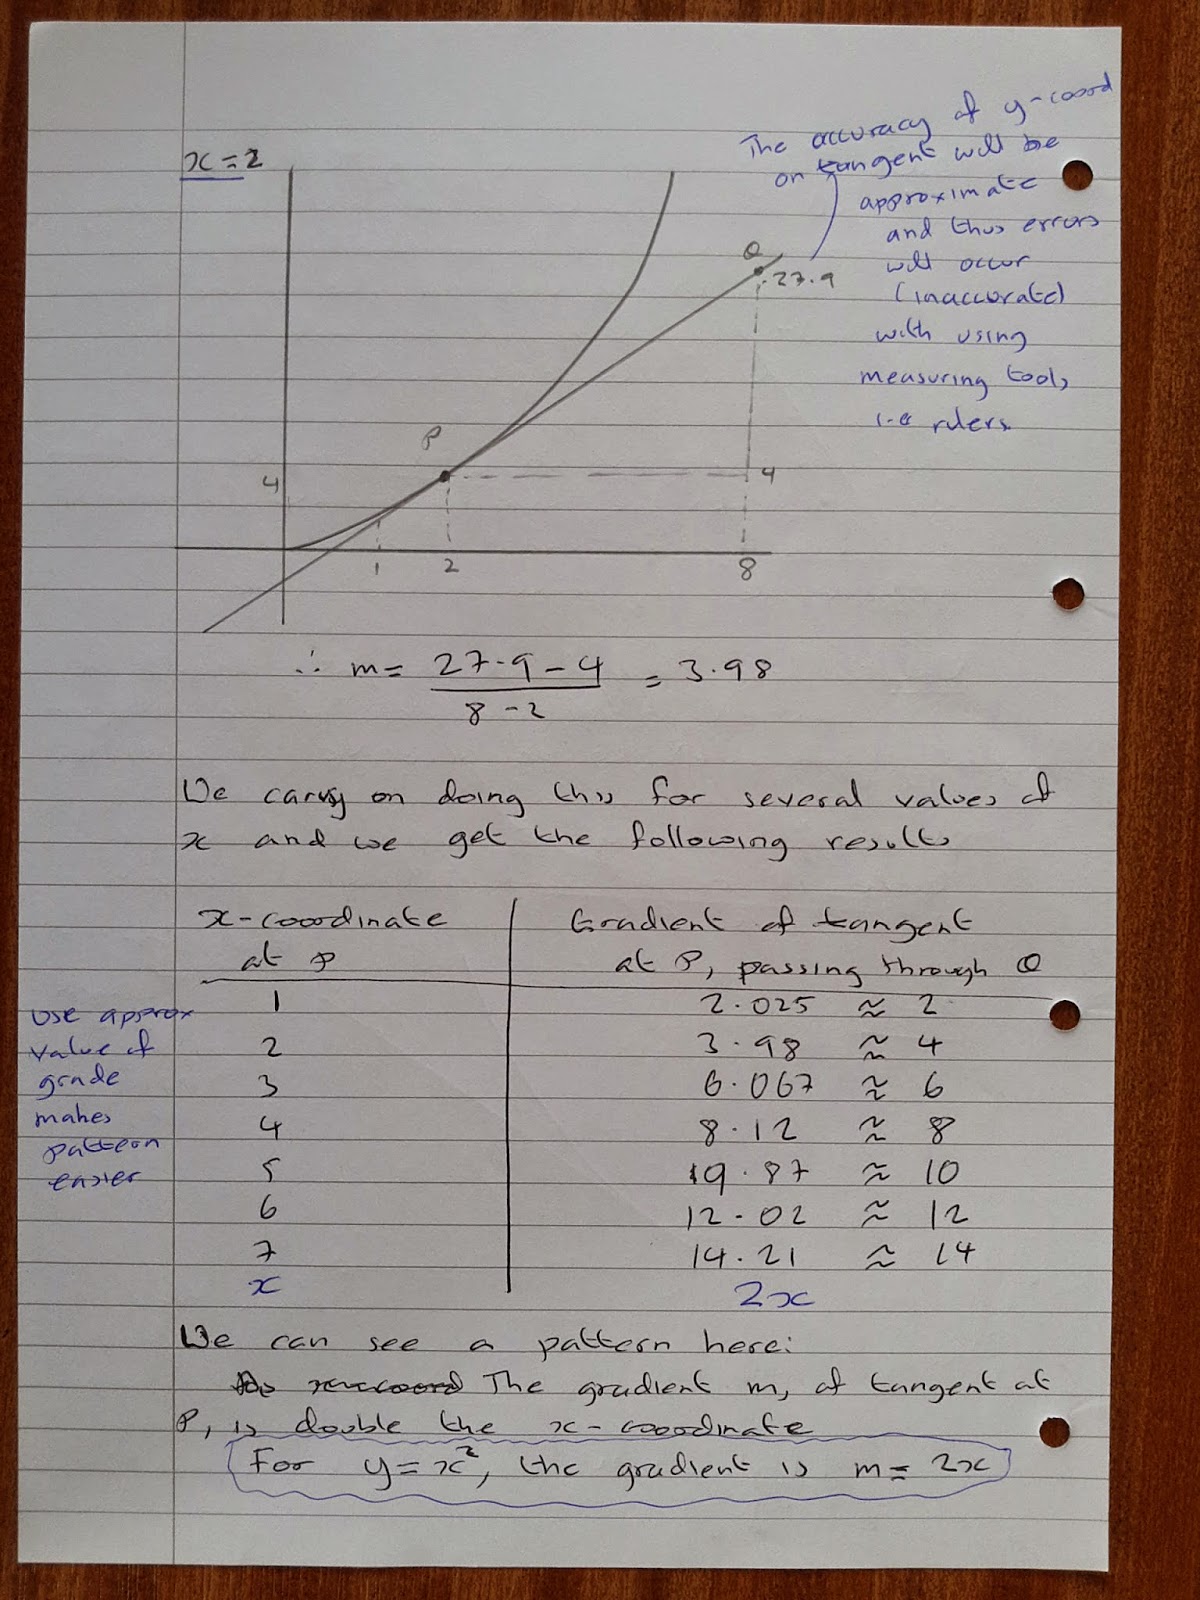 x=2
The accuracy of y-coord
on tangent will be
approximate
and thus errors
will occur
(inaccurate)
with using
measuring tools,
i.e rulers
Q
27.9
P
4
4
1 2 8
∴ m = 27.9 - 4 / 8 - 2 = 3.98
We carry on doing this for several values of
x and we get the following results
x-coordinate | Gradient of tangent
at P | at P, passing through Q
1 | 2.025 ≈ 2
2 | 3.98 ≈ 4
3 | 6.067 ≈ 6
4 | 8.12 ≈ 8
5 | 9.87 ≈ 10
6 | 12.02 ≈ 12
7 | 14.21 ≈ 14
x | 2x
Use approx
value of
grade
makes
pattern
easier
We can see a pattern here:
The gradient m, of tangent at
P, is double the x-cooordinate
For y = x², the gradient is m = 2x